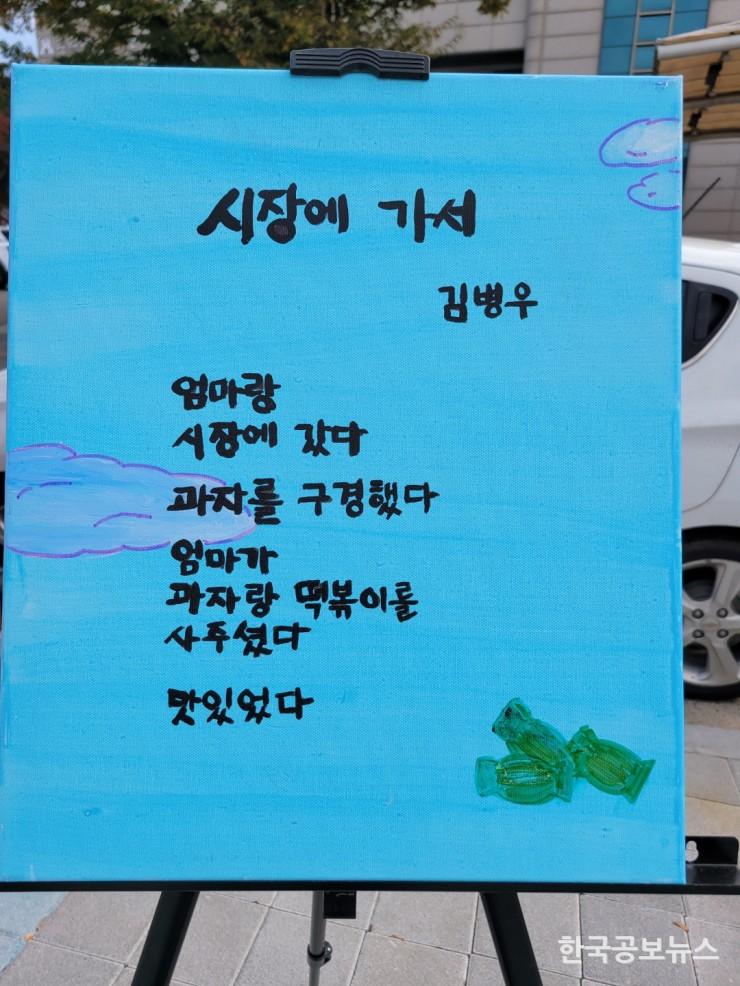 시장에 가서
김병우
엄마랑
시장에 갔다
과자를 구경했다
엄마가
과자랑 떡볶이를
사주셨다
맛있었다
한국공보뉴스